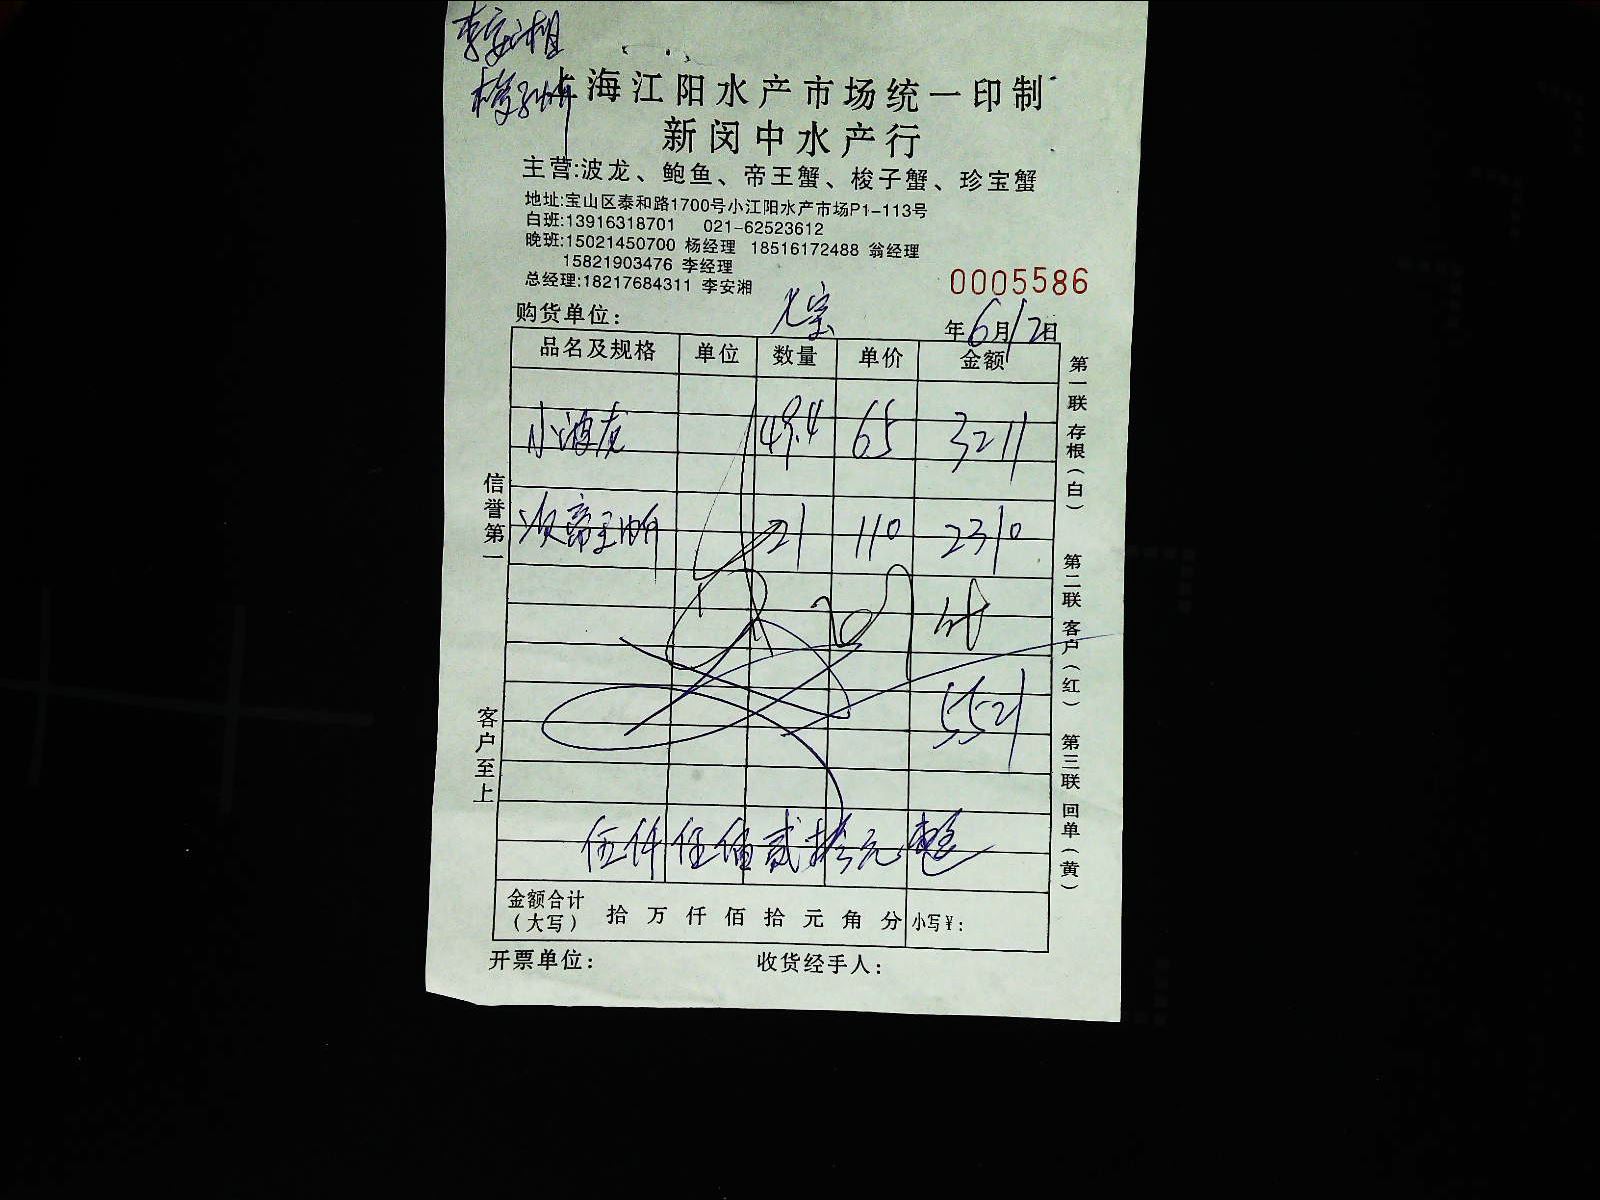 李安湘
梭子蟹
上海江阳水产市场统一印制
新闵中水产行
主营:波龙、鲍鱼、帝王蟹、梭子蟹、珍宝蟹
地址:宝山区泰和路1700号小江阳水产市场P1-113号
白班:13916318701 021-62523612
晚班:15021450700 杨经理 18516172488 翁经理
15821903476 李经理
总经理:18217684311 李安湘
0005586
购货单位:
年6月12日
品名及规格 单位 数量 单价 金额
小波龙 49.4 65 3211
次帝王蟹 21 110 2310
计
5521
伍仟伍佰贰拾元
金额合计(大写) 拾 万 仟 佰 拾 元 角 分 小写¥:
开票单位: 收货经手人:
信誉第一
客户至上
第一联 存根(白) 第二联 客户(红) 第三联 回单(黄)